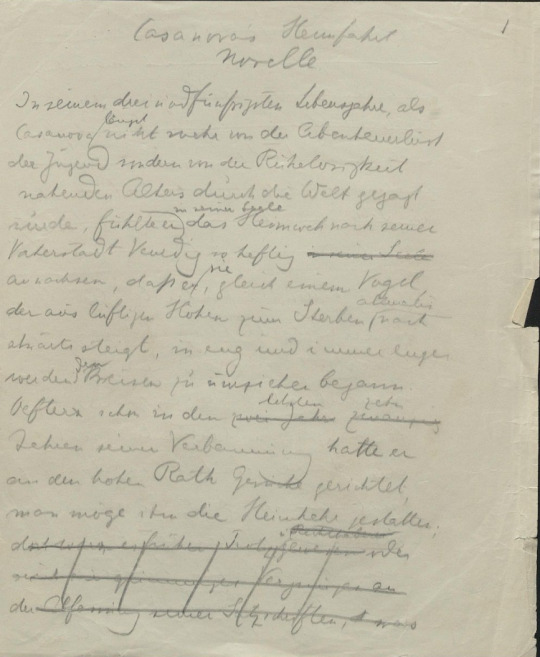 1
Casanovas Heimfahrt
Novelle
In seinem dreiundfünfzigsten Lebensjahre, als
Casanova längst nicht mehr von der Abenteuerlust
der Jugend sondern von der Ruhelosigkeit
nahenden Alters durch die Welt gejagt
wurde, fühlte er in seiner Seele das Heimweh nach seiner
Vaterstadt Venedig so heftig in seiner Seele
anwachsen, daß er sie, gleich einem Vogel
der aus luftigen Höhen zum Sterben allmälig nach
abwärts steigt, in eng und immer enger
werdenden Kreisen zu umziehen begann.
Oefters schon in den letzten zehn
Jahren seiner Verbannung hatte er
an den hohen Rath Gesuche gerichtet,
man möge ihm die Heimkehr gestatten;
oder
an
der Abfassung seiner